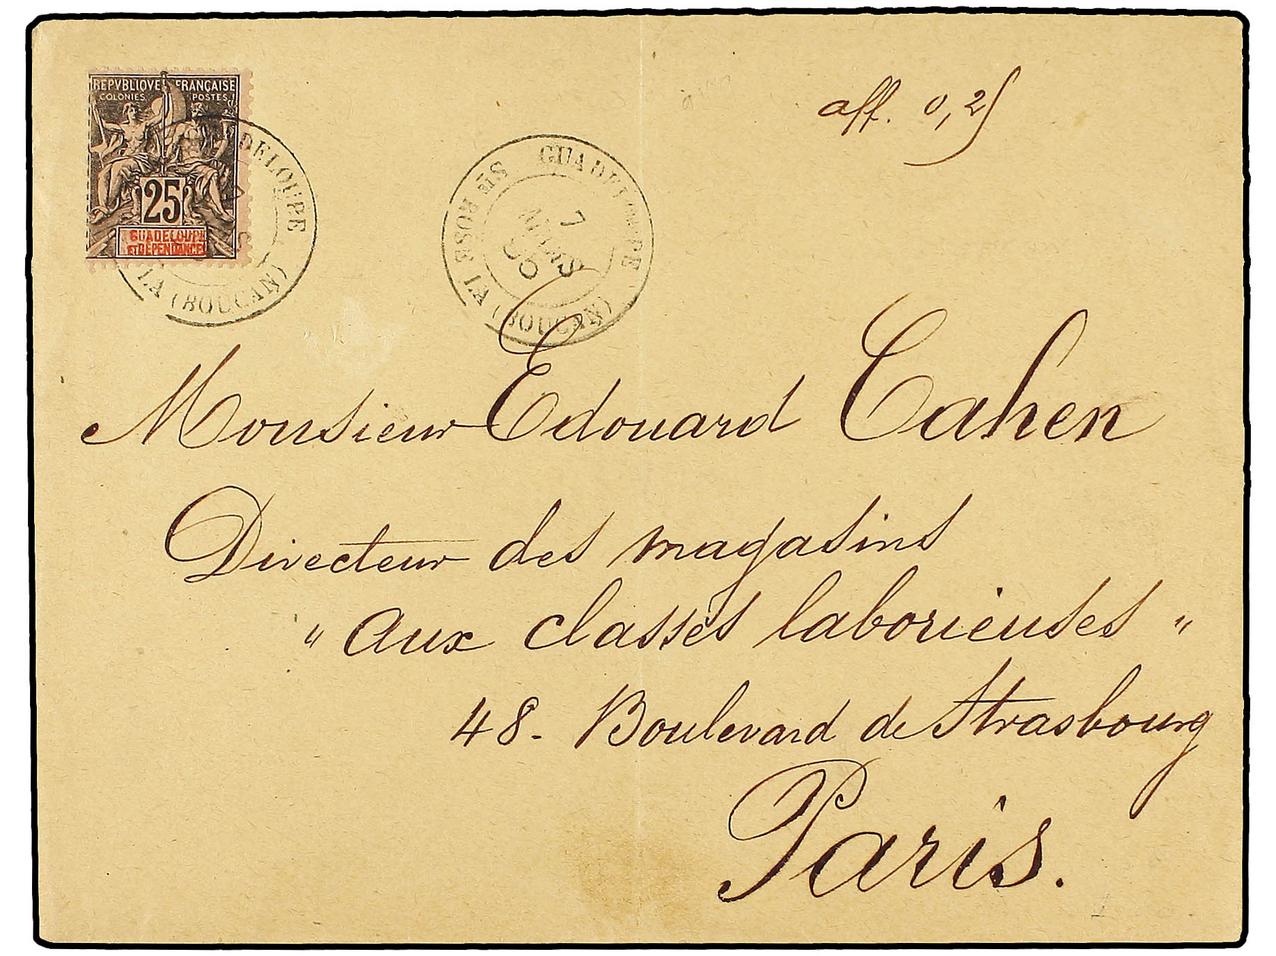 REPVBLIQVE FRANÇAISE
COLONIES POSTES
25
GUADELOUPE
ET DÉPENDANCES
DELOUPE
LA (BOUCAN)
aff. 0,25
STE ROSE LA (BOUCAN) GUADELOUPE
7
MARS
Monsieur Edouard Cahen
Directeur des magasins
"Aux classes laborieuses"
48. Boulevard de Strasbourg
Paris.